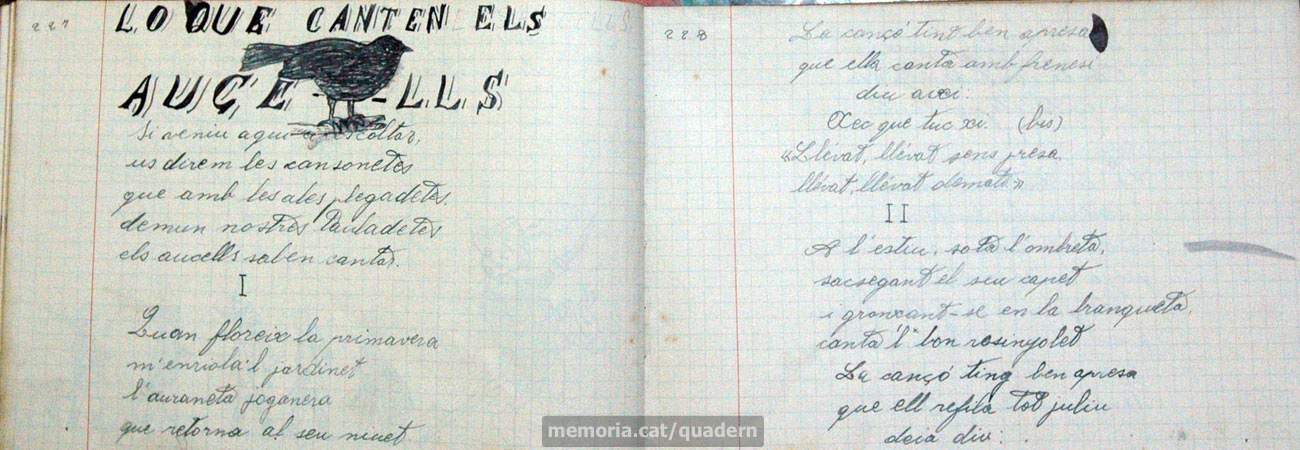 227
LO QUE CANTEN ELS
AUÇE-LLS
Si veniu aqui a escoltar,
us direm les cansonetes
que amb les ales plegadetes,
demun nostres
els aucells saben cantar.
I
Quan floreix la primavera
m'enriola'l jardinet
l'auraneta joganera
que retorna al seu niuet
228
La cançó tinc ben apresa
que ella canta amb frenesi
diu aixi:
Xec que tuc xi. (bis)
«Llévat, llévat sens presa
llévat, llévat demati»
II
A l'estiu, sota l'ombreta,
sacsegant el seu capet
i gronxant-se en la branqueta,
canta'l bon rosinyolet
La cançó ting ben apresa
que ell refila tot juliu
deia diu:
memoria.cat/quadern